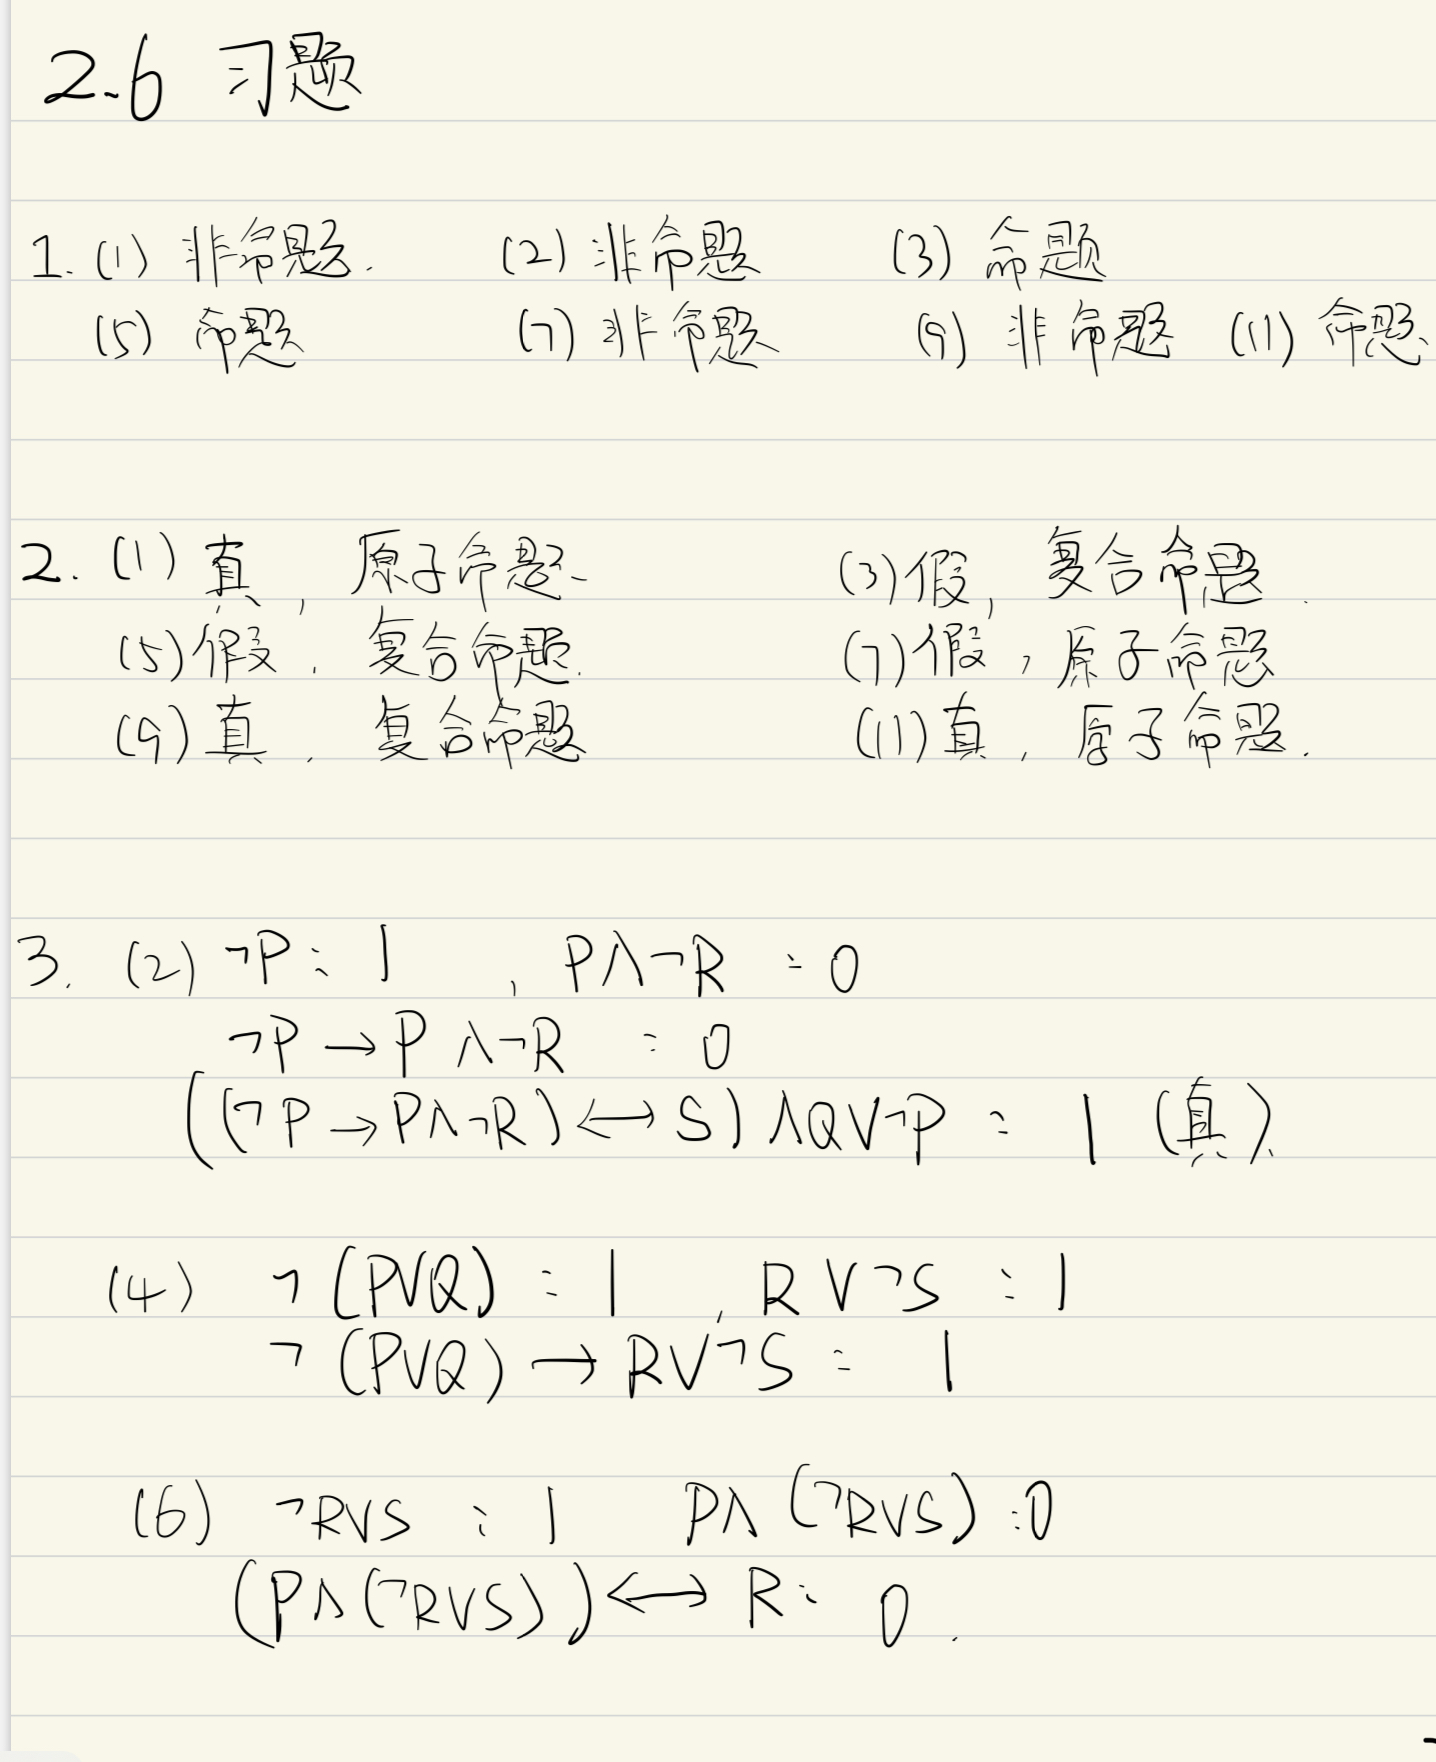 2.6 习题
1. (1) 非命题. (2) 非命题 (3) 命题
(5) 命题 (7) 非命题 (9) 非命题 (11) 命题
2. (1) 真, 原子命题. (3) 假, 复合命题.
(5) 假, 复合命题. (7) 假, 原子命题
(9) 真, 复合命题 (11) 真, 原子命题.
3. (2) ¬P : 1 , P∧¬R : 0
¬P → P∧¬R : 0
((¬P → P∧¬R) ↔ S) ∧Q∨¬P : 1 (真).
(4) ¬(P∨Q) : 1 , R∨¬S : 1
¬(P∨Q) → R∨¬S : 1
(6) ¬R∨S : 1 P∧(¬R∨S) : 0
(P∧(¬R∨S)) ↔ R : 0.